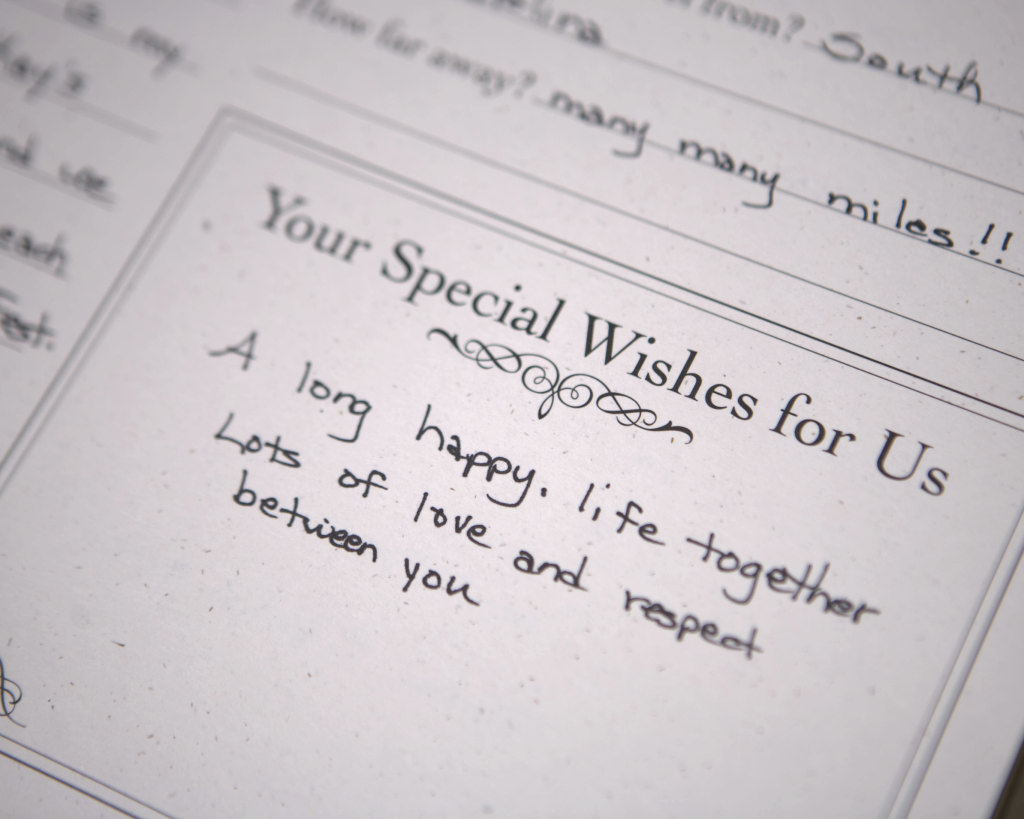 from? South
How far away? many many miles!!
is my
and we
each
Your Special Wishes for Us
A long happy. life together
Lots of love and respect
between you